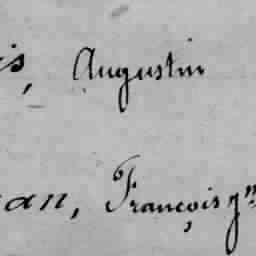 is, Augustin
an, François